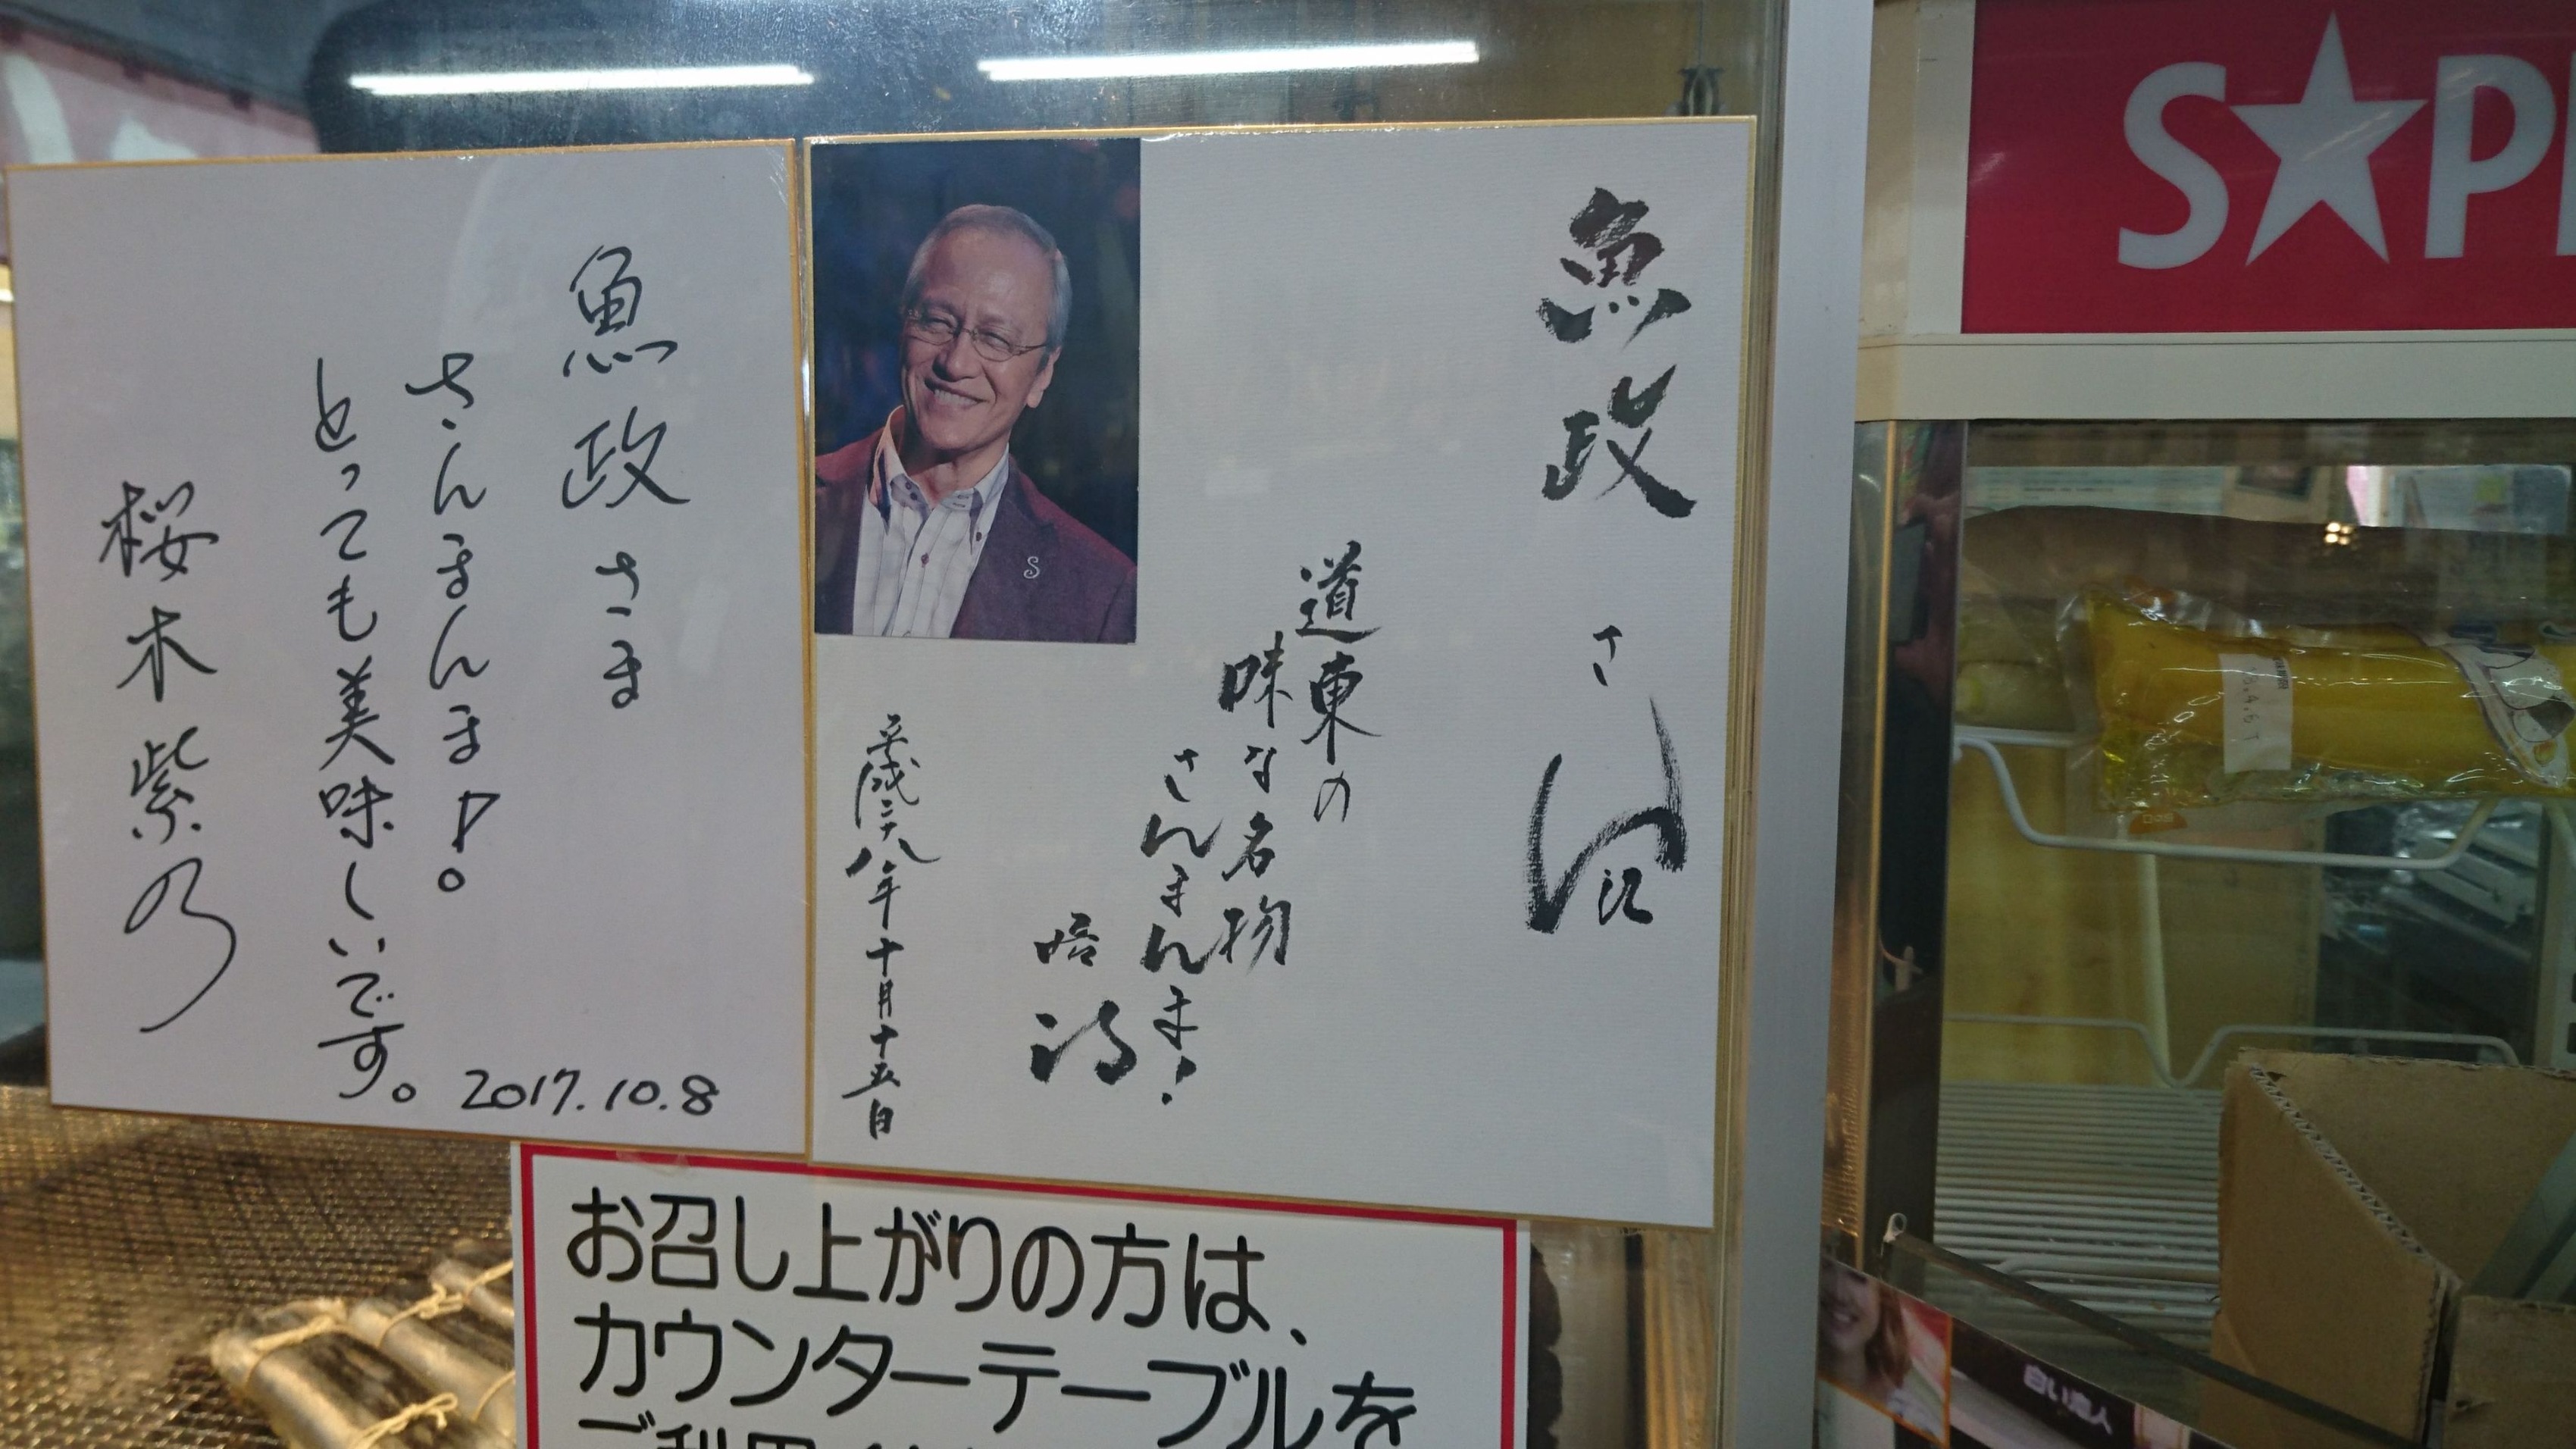 魚政さま
さんまんま!。
とっても美味しいです。
桜木紫乃
2017.10.8
魚政さん江
道東の
味な名物
さんまんま!
平成二十八年十月十五日
お召し上がりの方は、
カウンターテーブルを
S★P
白い恋人